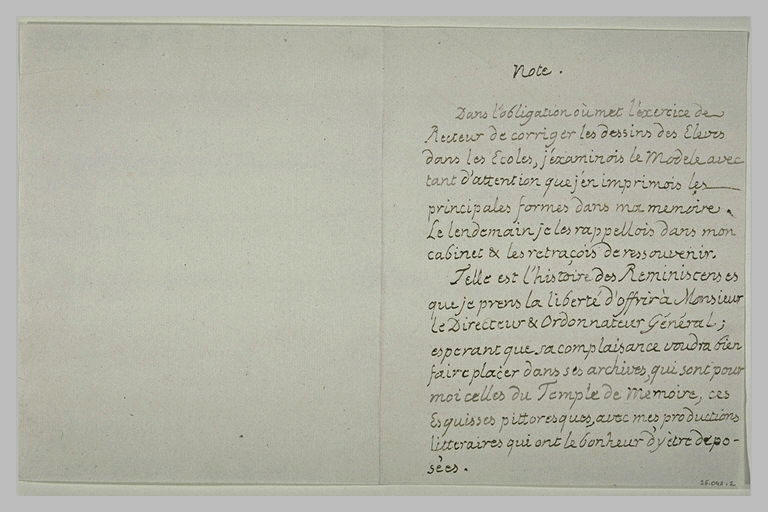 Note.
Dans l'obligation où met l'exercice de
Recteur de corriger les dessins des Eleves
dans les Ecoles, j'éxaminois le Modele avec
tant d'attention que j'en imprimois les
principales formes dans ma memoire.
Le lendemain je les rappellois dans mon
cabinet & les retraçois de ressouvenir.
Telle est l'histoire des Reminiscenses
que je prens la liberté d'offrir à Monsieur
le Directeur & Ordonnateur Général;
esperant que sa complaisance voudra bien
faire placer dans ses archives, qui sont pour
moi celles du Temple de Memoire, ces
Esquisses pittoresques, avec mes productions
litteraires qui ont le bonheur d'y être depo-
sées.